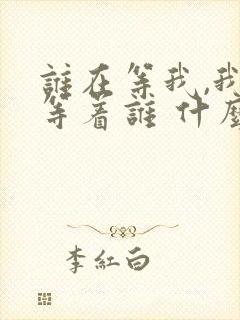 誰在等我,我
等着誰 什麼
李紅白